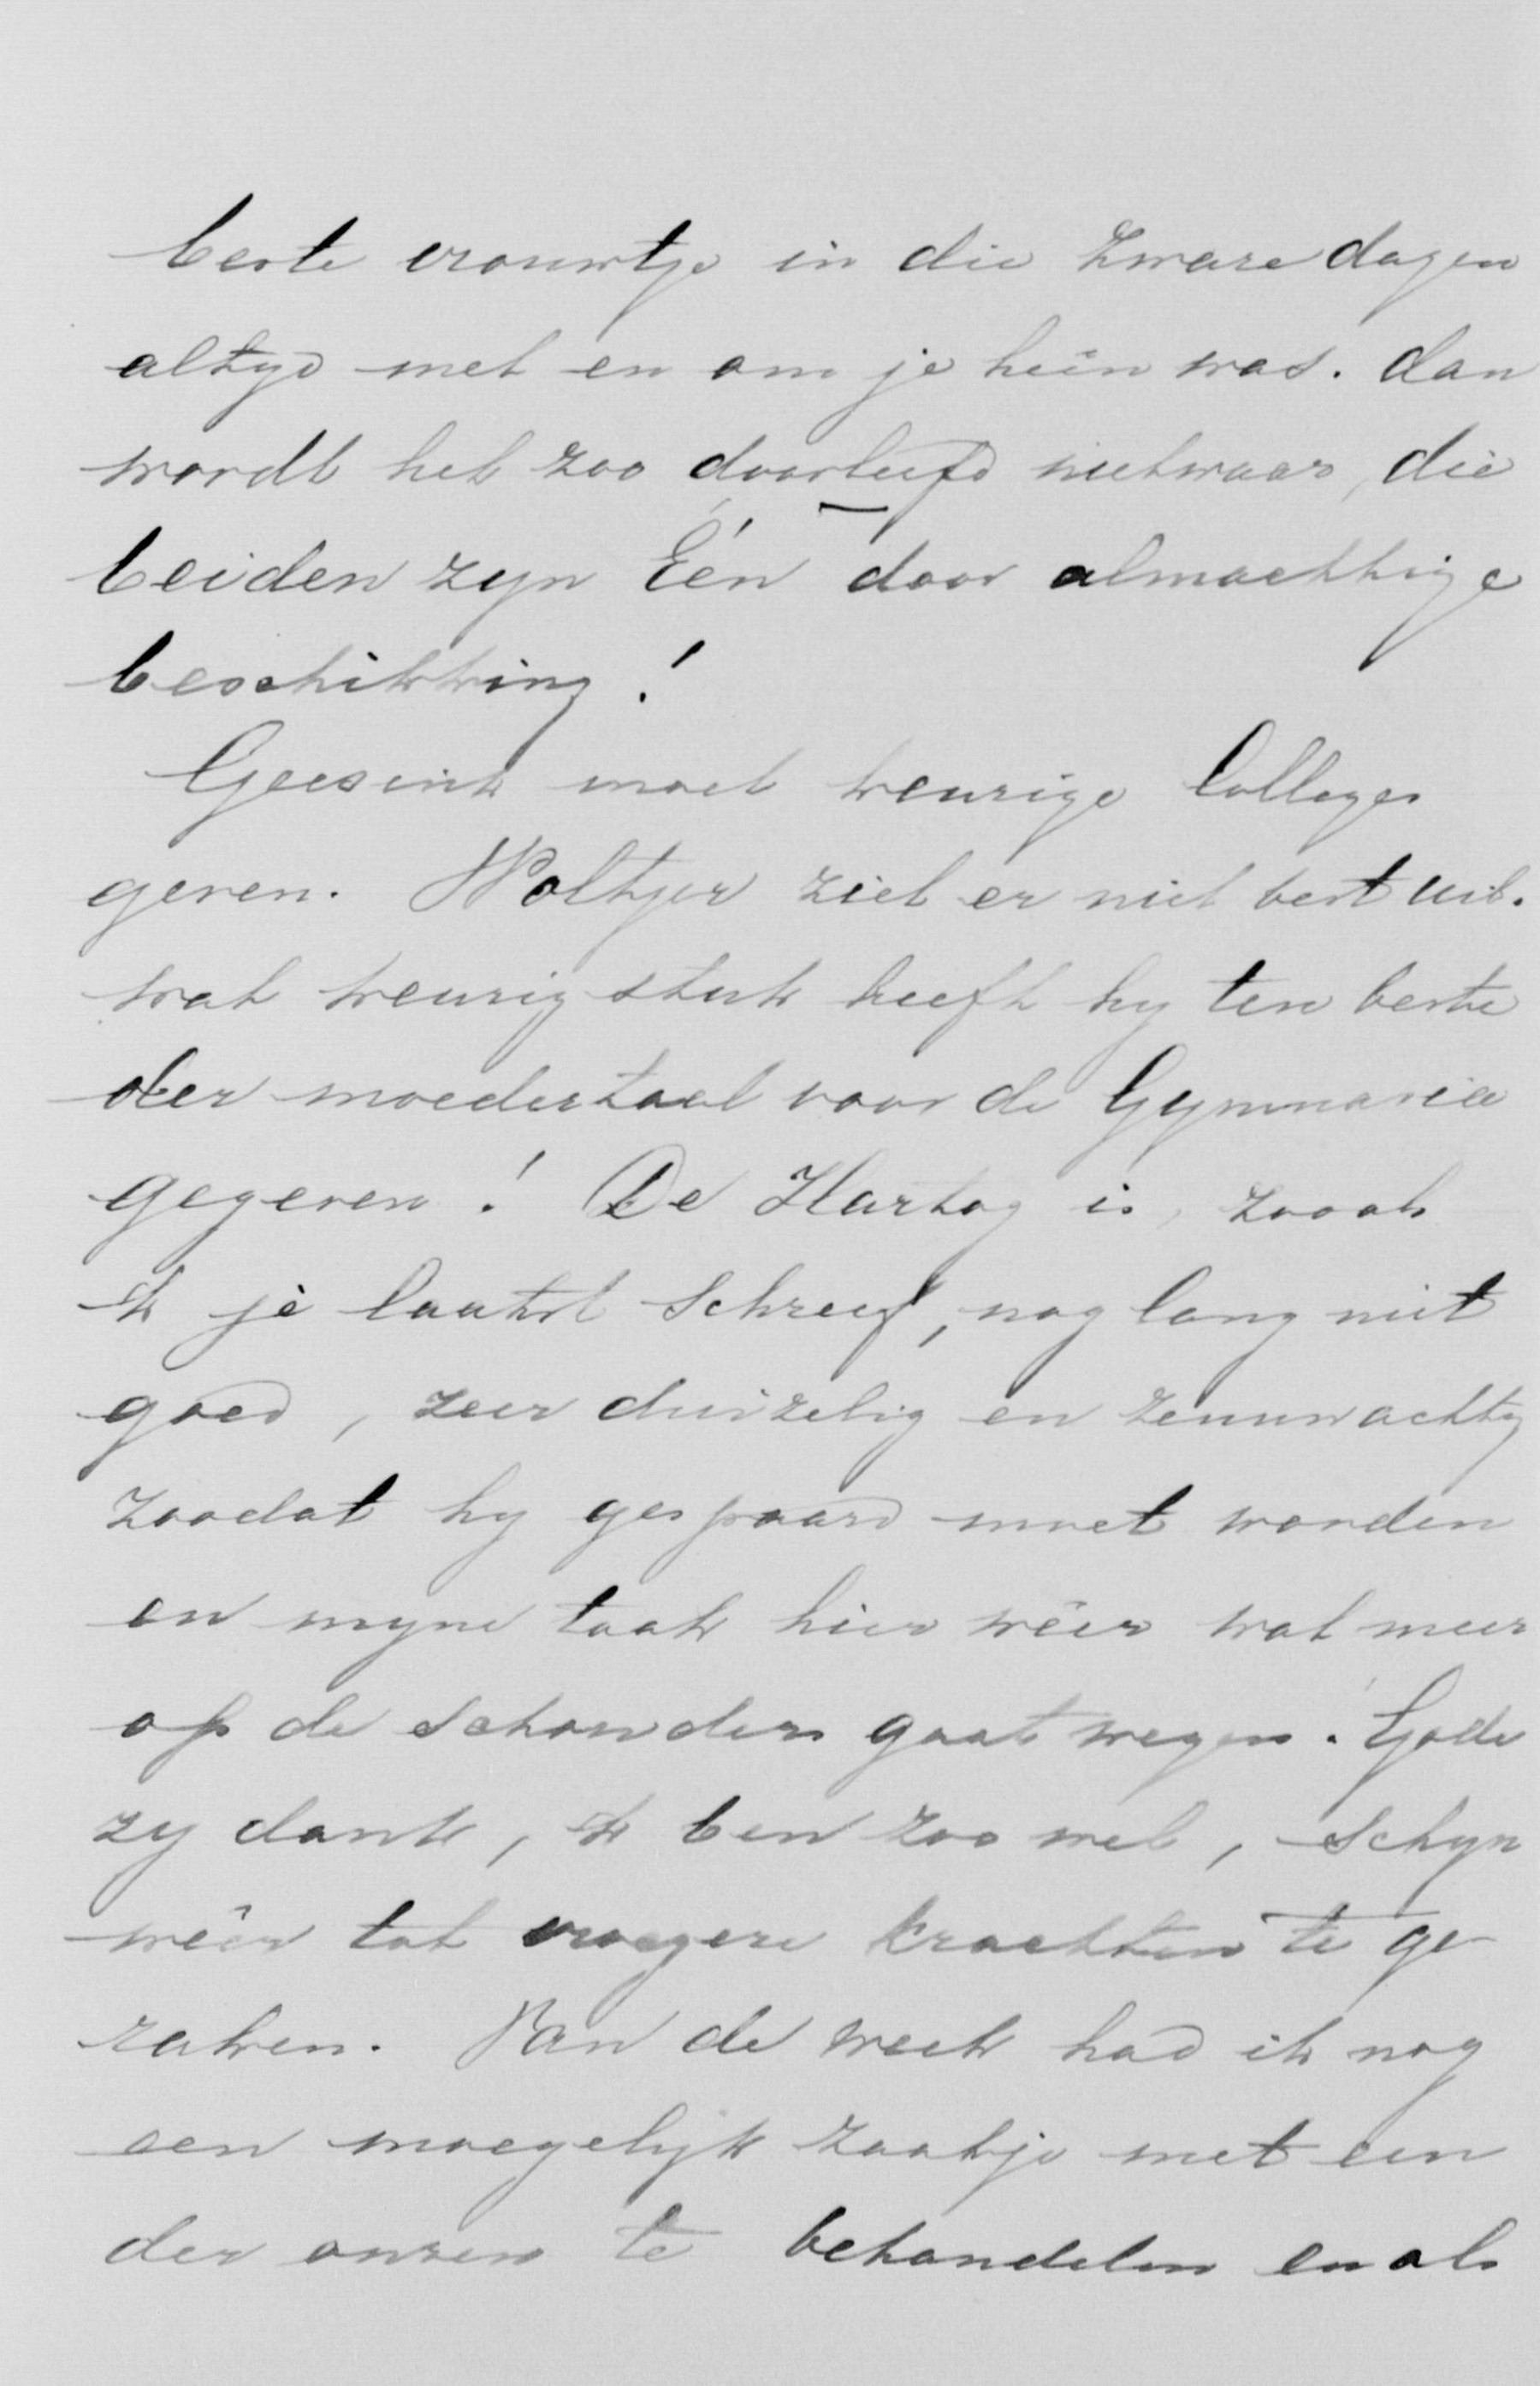 beste vrouwtje in die zware dagen
altyd met en om je heên was. dan
wordt het zoo doorleefd nietwaar, die
beiden zyn Eén door almachtige
beschikking!
Geesink moet keurige Colleges
geven. Woltjer ziet er niet best uit.
wat keurig stuk heeft hy ten beste
der moedertaal voor de Gymnasia
gegeven! De Hartog is, zooals
ik je laatst schreef, nog lang niet
goed, zeer duizelig en zenuwachtig
zoodat hy gespaard moet worden
en myne taak hier wêer wat meer
op de schouders gaat wegen. Gode
zy dank, ik ben zoo wel, schyn
wêer tot vroegere krachten te ge-
raken. Van de week had ik nog
een moegelyk zaakje met een
der onzen te behandelen en als